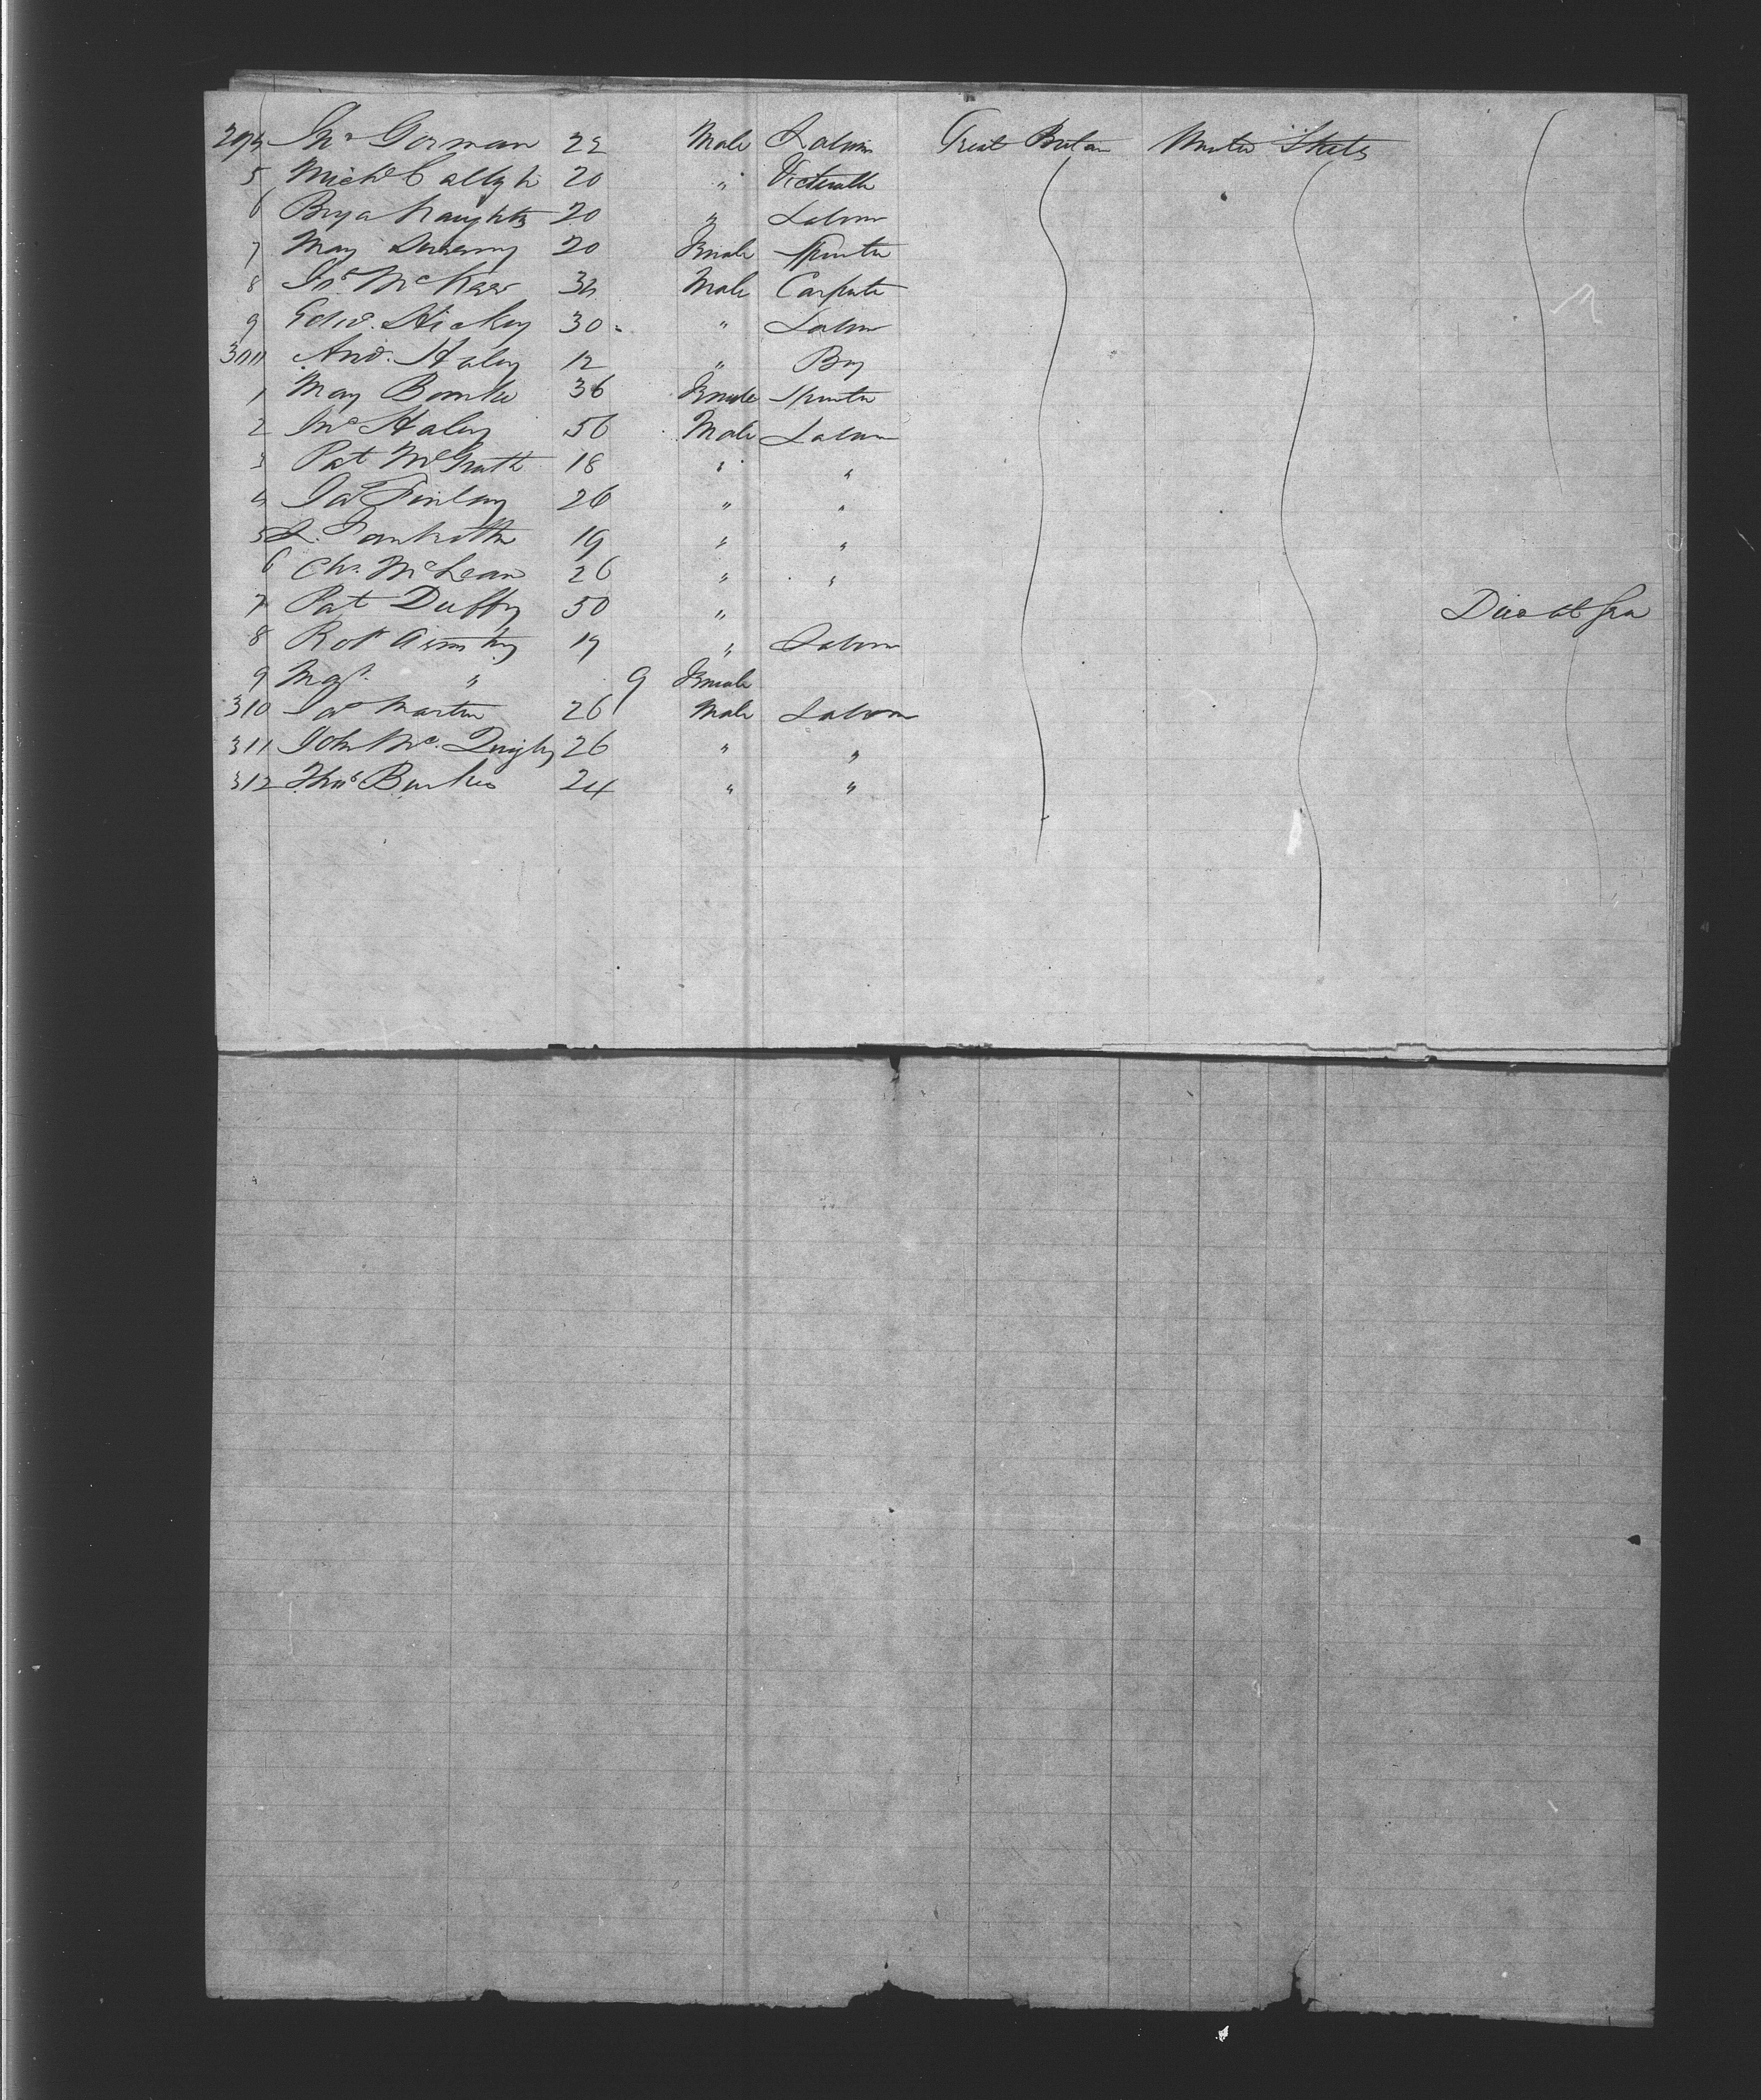 294 Jno Gorman 22 Male Labour Great Britan United States
5 Michl 20 " Victualler
6 20 " Labour
7 May 20 Female Spinster
8 Jno McKeer Male Carpenter
9 Edwd. Hickey 30 " Labour
300 And. Haley 12 " Boy
1 May Bourke 36 Female Spinster
2 Jno Haley 50 Male Labour
3 Pat McGrath 18 " "
4 Jas Finlay 26 " "
5 19 " "
6 Chs. McLean 26 " "
7 Pat Duffy 50 " Died at Sea
8 Robt 19 " Labour
9 Mgt. " 9 Female
310 Jas Martin 26 Male Labour
311 John Mc. Quigly 26 " "
312 Thos Burke 24 " "